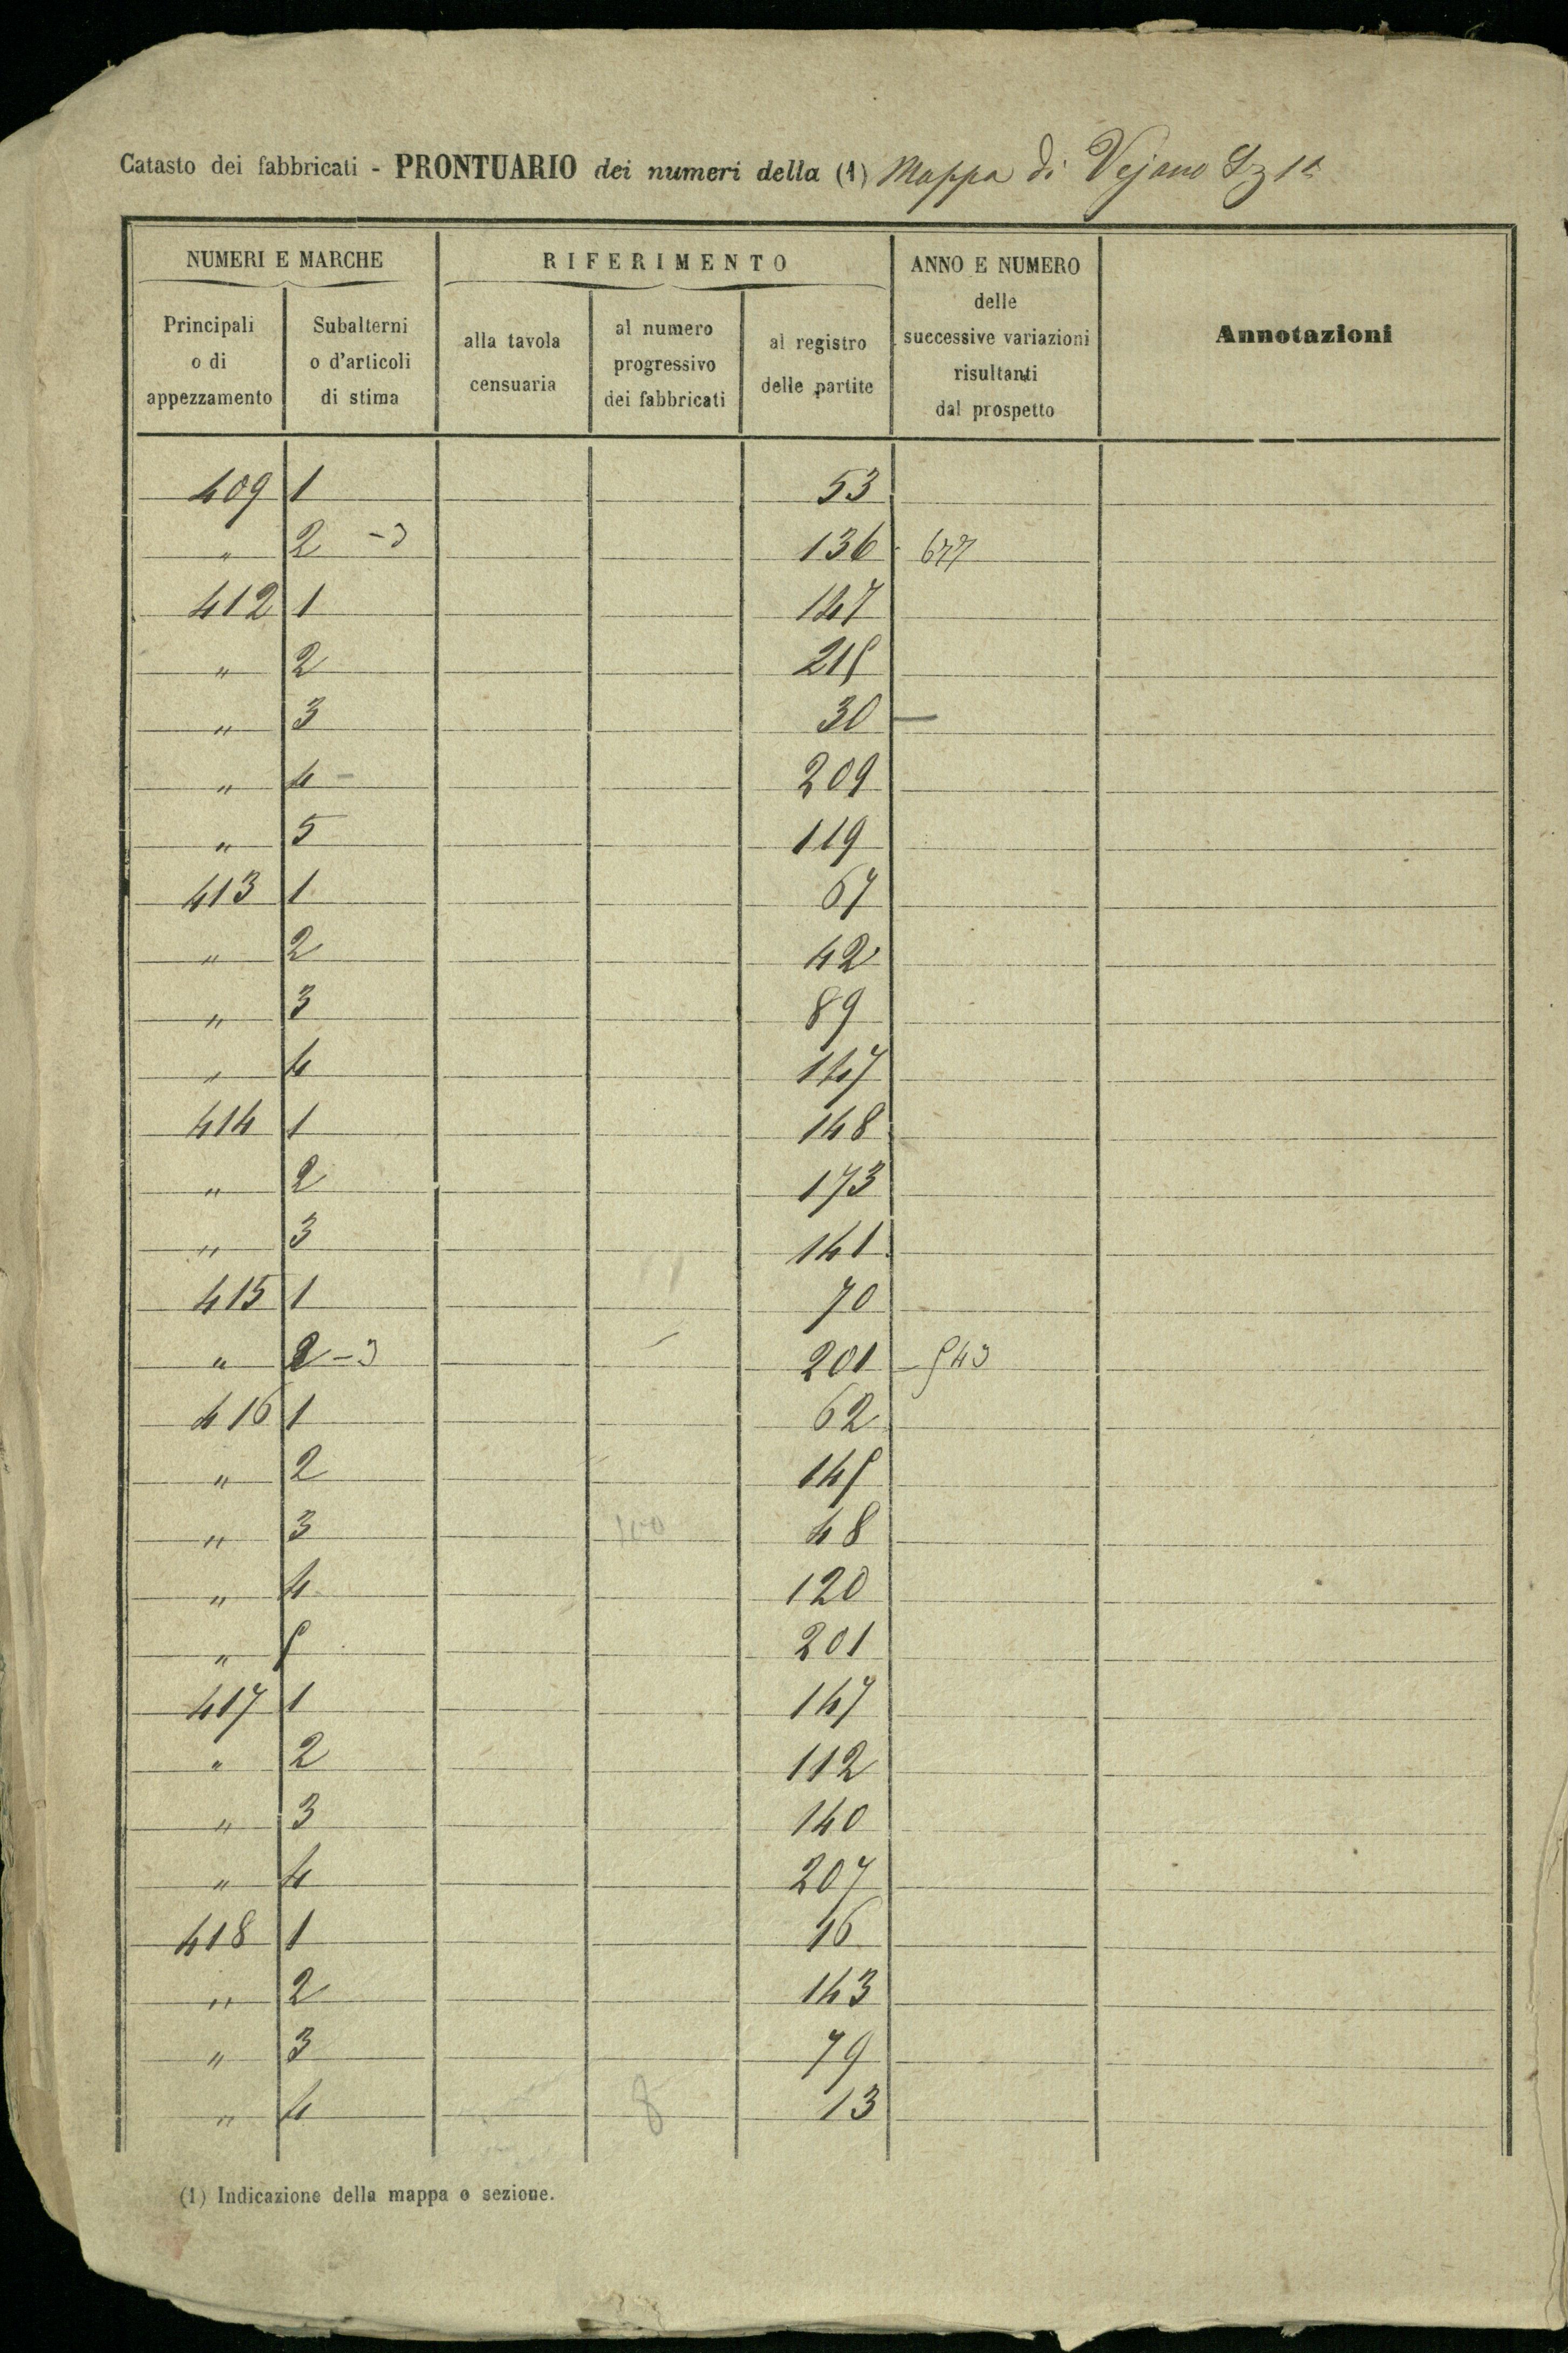 Catasto dei fabbricati - PRONTUARIO dei numeri della (1) Mappa di Vejano Sz 1ª
NUMERI E MARCHE
RIFERIMENTO
ANNO E NUMERO
delle
successive variazioni
risultanti
dal prospetto
Annotazioni
Principali
o di
appezzamento
Subalterni
o d'articoli
di stima
alla tavola
censuaria
al numero
progressivo
dei fabbricati
al registro
delle partite
409 1 53
" 2 -3 136 677
412 1 147
" 2 215
" 3 30 —
" 4 - 209
" 5 119
413 1 67
" 2 42
" 3 89
" 4 147
414 1 148
" 2 173
" 3 141
415 1 70
" 2 - 3 201 - 543
416 1 62
" 2 145
" 3 100 48
" 4 120
" 5 201
417 1 147
" 2 112
" 3 140
" 4 207
418 1 46
" 2 143
" 3 79
" 4 8 13
(1) Indicazione della mappa o sezione.